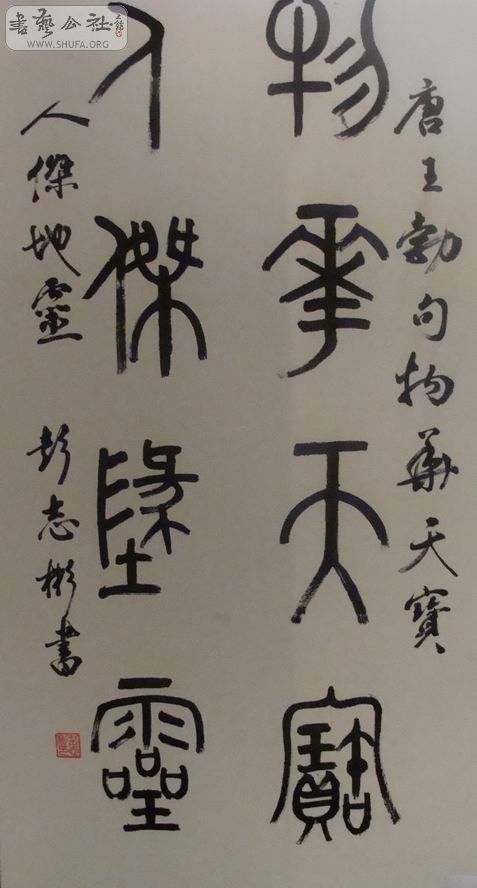 書藝公社
WWW.SHUFA.ORG
唐王勃句物華天寶
物華天寶
人傑地靈
人傑地靈 彭志彬書